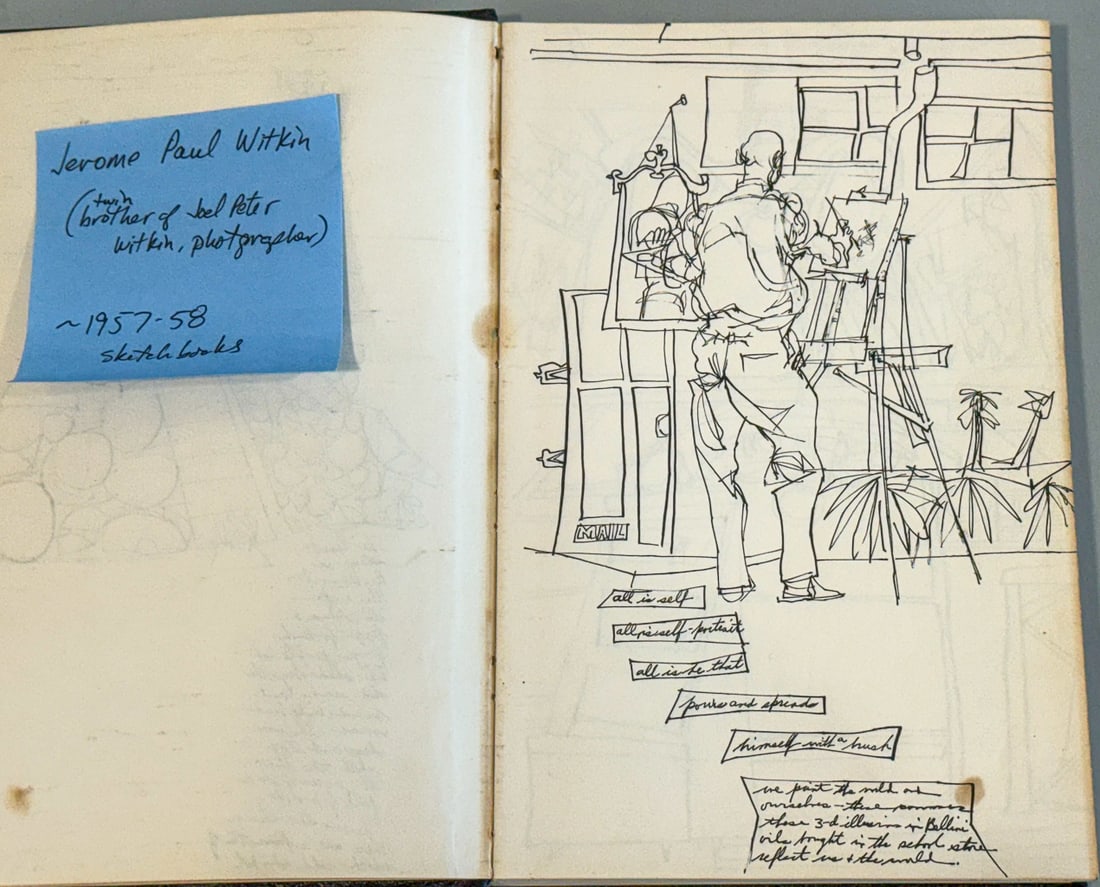 Jerome Paul Witkin
(twin
brother of Joel Peter
Witkin, photographer)
~1957-58
sketchbooks
MAIL
all is self
all is self-portrait
all is he that
pours and spreads
himself with a brush
we paint the world as
ourselves - these
those 3-d illusions in Bellini
oils bought in the school store
reflect us + the world.